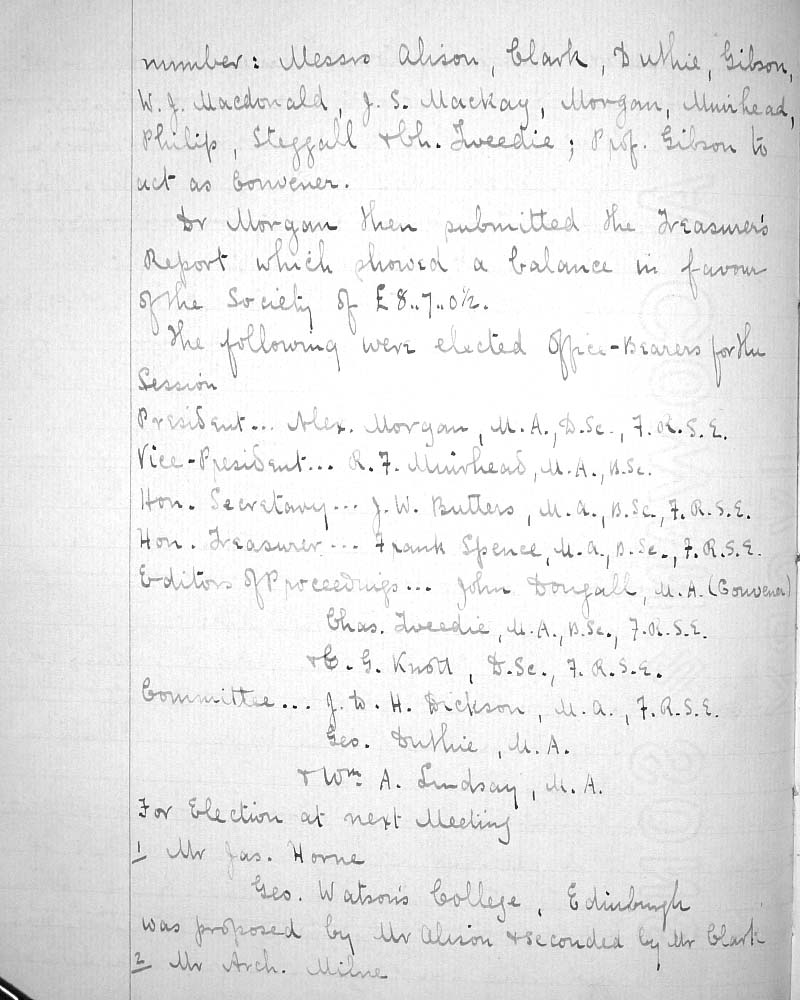 number: Messrs Alison, Clark, Duthie, Gibson,
W. J. Macdonald, J. S. Mackay, Morgan, Muirhead,
Philip, Steggall & Ch. Tweedie; Prof. Gibson to
act as Convener.
Dr Morgan then submitted the Treasurer's
Report which showed a balance in favour
of the Society of £8..7..0½.
The following were elected Office-Bearers for the
Session
President... Alex. Morgan, M.A., D.Sc., F.R.S.E.
Vice-President... R. F. Muirhead, M.A., B.Sc.
Hon. Secretary... J. W. Butters, M.A., B.Sc., F.R.S.E.
Hon. Treasurer... Frank Spence, M.A., B.Sc., F.R.S.E.
Editors of Proceedings... John Dougall, M.A. (Convener)
Chas. Tweedie, M.A., B.Sc., F.R.S.E.
& C. G. Knott, D.Sc., F.R.S.E.
Committee... J. D. H. Dickson, M.A., F.R.S.E.
Geo. Duthie, M.A.
& Wm. A. Lindsay, M.A.
For Election at next Meeting
1 Mr Jas. Horne
Geo. Watson's College, Edinburgh
was proposed by Mr Alison & seconded by Mr Clark
2 Mr Arch. Milne